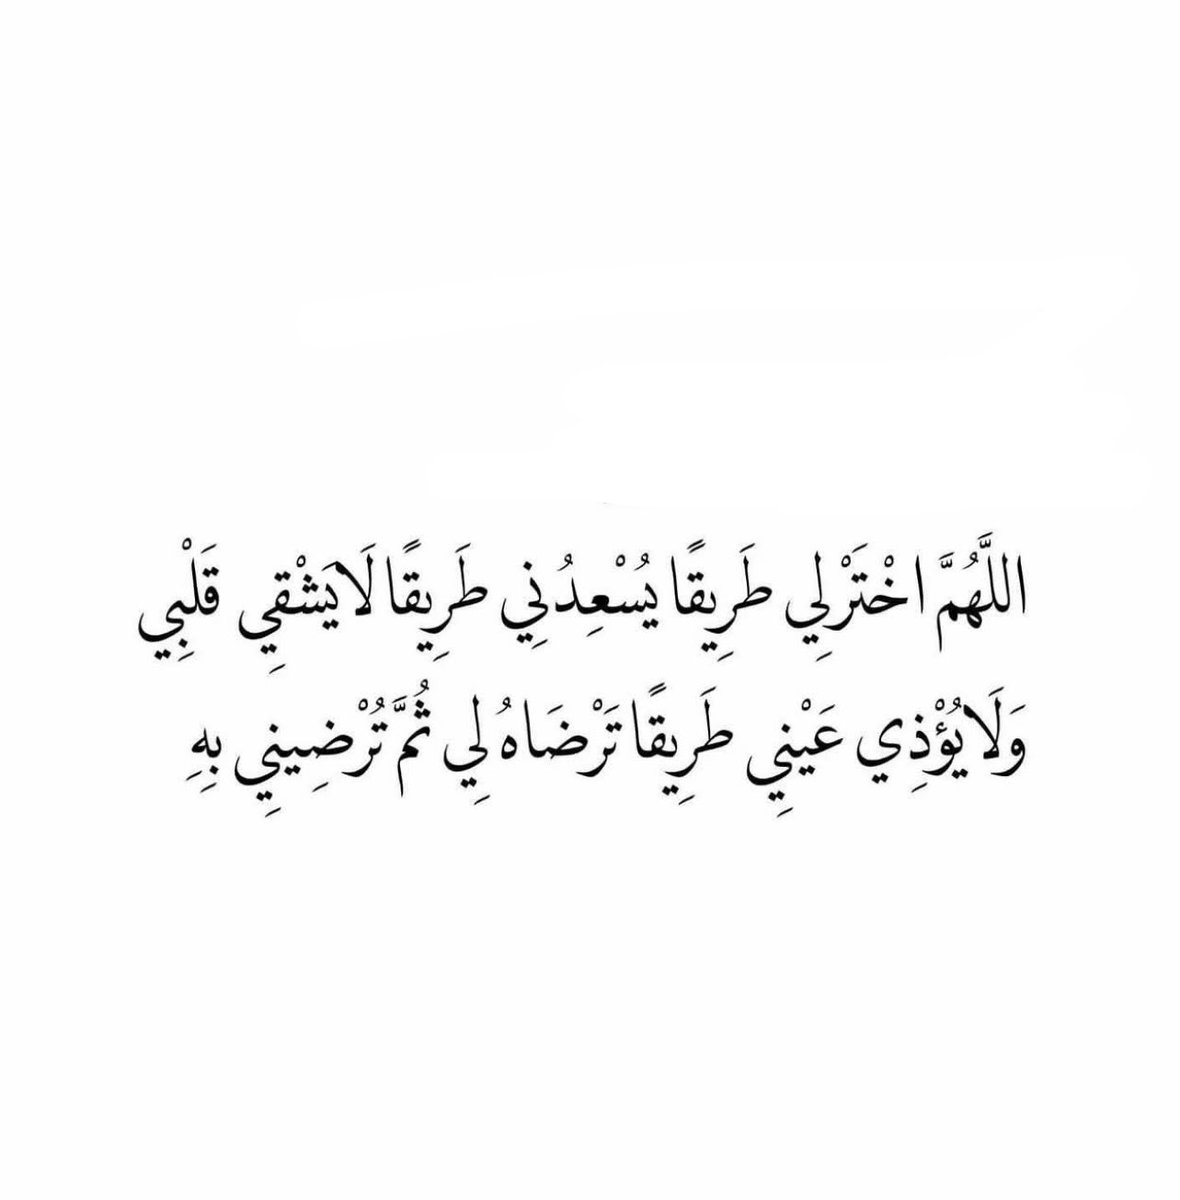 اللَّهُمَّ اخْتَرْلِي طَرِيقًا يُسْعِدُنِي طَرِيقًا لَا يَشْقِي قَلْبِي
وَلَا يُؤْذِي عَيْنِي طَرِيقًا تَرْضَاهُ لِي ثُمَّ تُرْضِينِي بِهِ